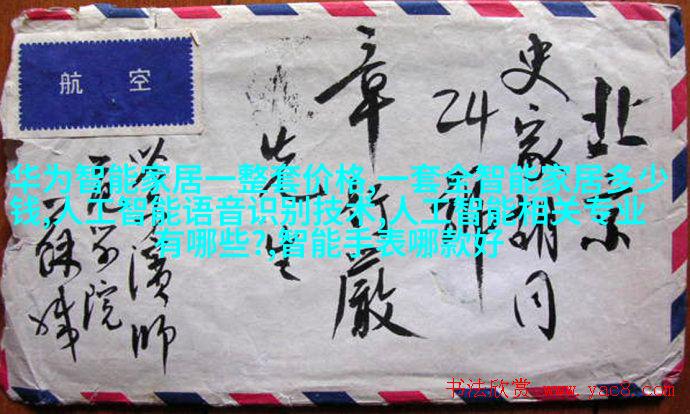 航空
北京
史家胡同
24号
章行嚴
先生
濱師
学院
华为智能家居一整套价格,一套全智能家居多少
钱,人工智能语音识别技术,人工智能相关专业
有哪些?,智能手表哪款好
书法欣赏 www.yac8.com